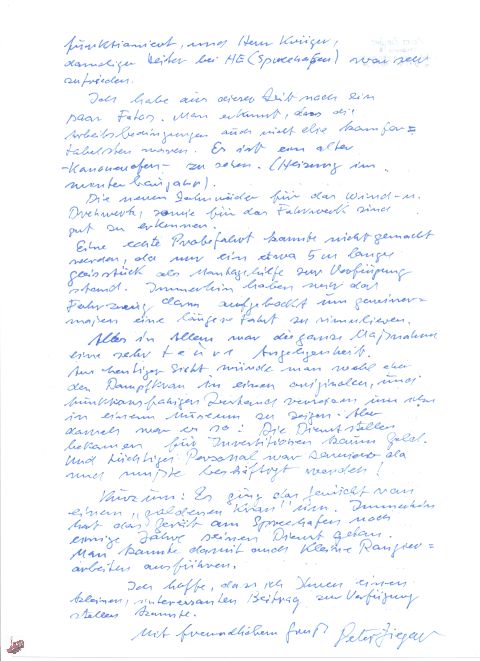 funktioniert, und Herr Krüger,
damaliger Leiter bei HE (Spreehafen) war sehr
zufrieden.
Ich habe aus dieser Zeit noch ein
paar Fotos. Man erkennt, dass die
Arbeitsbedingungen auch nicht die komfor=
tabelsten waren. Es ist ein alter
-Kanonenofen- zu sehen. (Heizung im
Die neuen Zahnräder für das Wind- u.
Drehwerk, sowie für das Fahrwerk sind
gut zu erkennen.
Eine echte Probefahrt konnte nicht gemacht
werden, da nur ein etwa 5 m langes
Gleisstück als Montagehilfe zur Verfügung
stand. Immerhin haben wir das
Fahrzeug dann aufgebockt um gewisser=
maßen eine längere Fahrt zu simulieren.
Alles in Allem war die ganze Maßnahme
eine sehr teure Angelegenheit.
Aus heutiger Sicht würde man wohl eher
den Dampfkran in einen originalen, und
funktionsfähigen Zustand versetzen um ihn
in einem Museum zu zeigen. Aber
damals war es so: Die Dienststellen
bekamen für Investitionen kaum Geld.
Und tüchtiges Personal war sowieso da
und mußte beschäftigt werden!
Kurzum: Es ging das Gerücht von
einem "goldenen Kran" um. Immerhin
hat das Gerät am Spreehafen noch
einige Jahre seinen Dienst getan.
Man konnte damit auch kleine Rangier=
arbeiten ausführen.
Ich hoffe, dass ich Ihnen einen
kleinen, interessanten Beitrag zur Verfügung
stellen konnte.
Mit freundlichem Gruß Peter